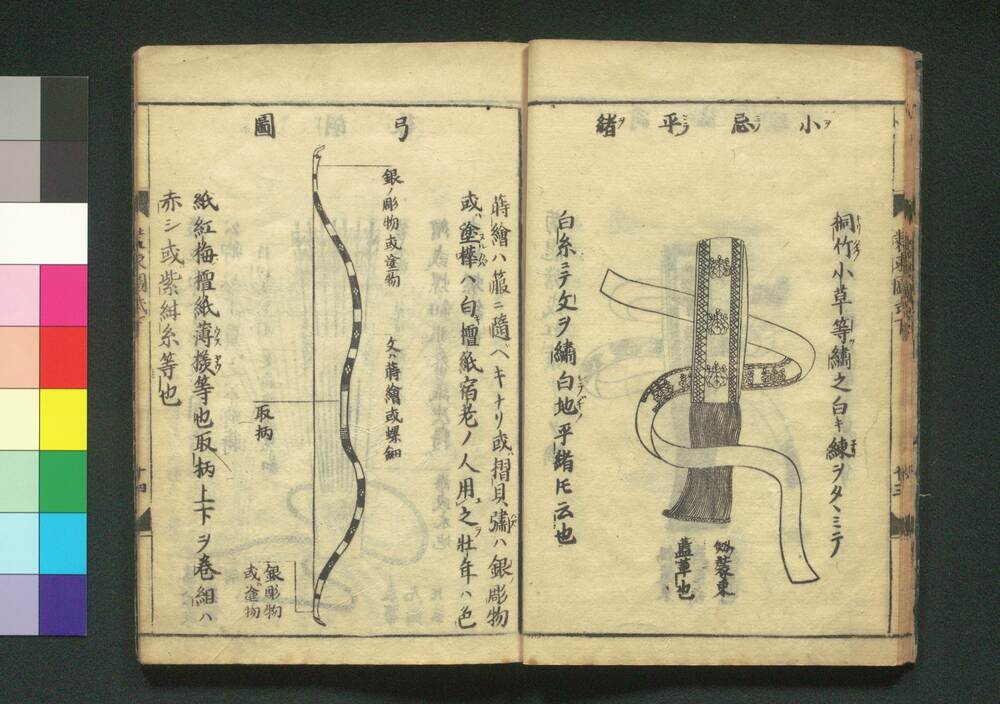 小忌平緒
桐竹小草等繡之白キ練ヲタヽミテ
白糸ニテ文ヲ繡白地平緒圧云也
劔装束
藍革也
弓圖
蒔繪ハ箙ニ随ベキナリ或摺貝彇ハ銀彫物
或ハ塗樺ハ白檀紙宿老ノ人用之壮年ハ色
銀ノ彫物或塗物
文ハ蒔繪或螺鈿
取柄
銀彫物
或ハ塗物
紙紅梅檀紙薄様等也取柄上下ヲ巻組ハ
赤シ或紫紺糸等也